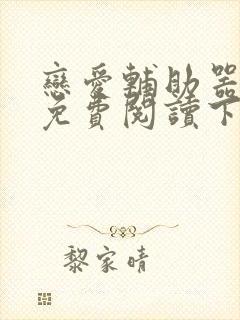 戀愛輔助器
免費閱讀下
黎家晴